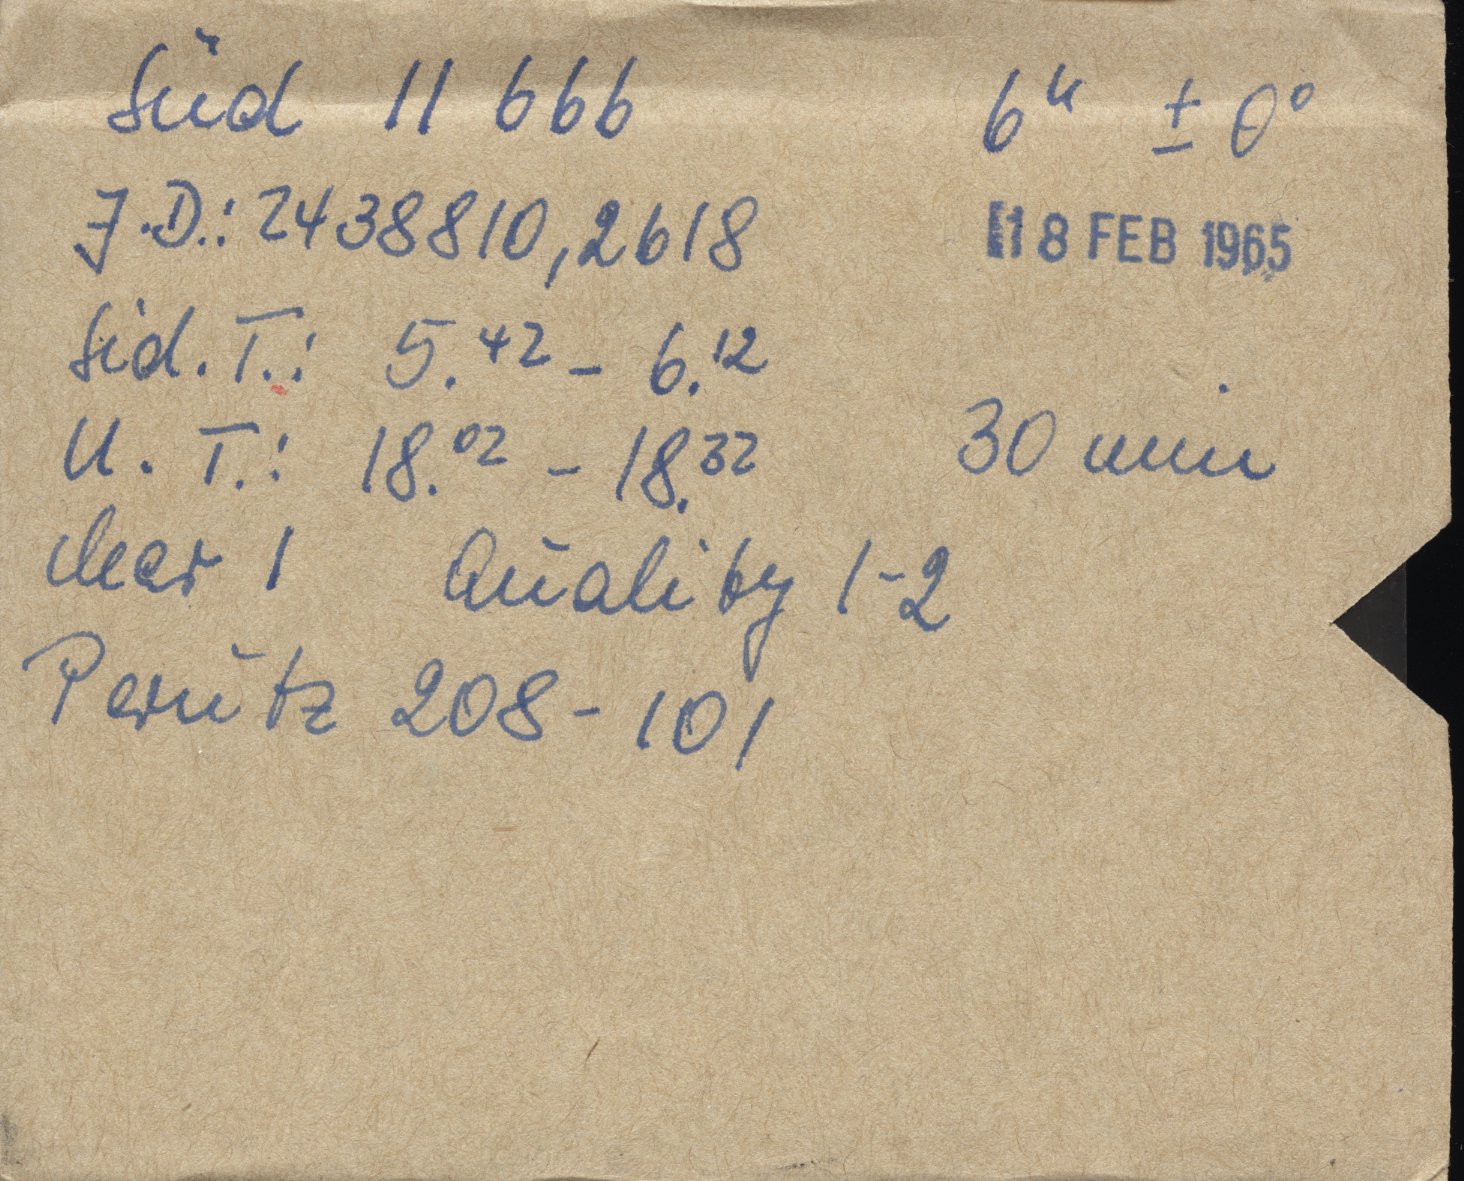 Süd 11 666 6ᵘ ± 0°
J.D.: 2438810,2618 18 FEB 1965
Sid. T.: 5.⁴² – 6.¹²
U. T.: 18.⁰² – 18.³² 30 min
clear 1 Quality 1-2
Perutz 208-101